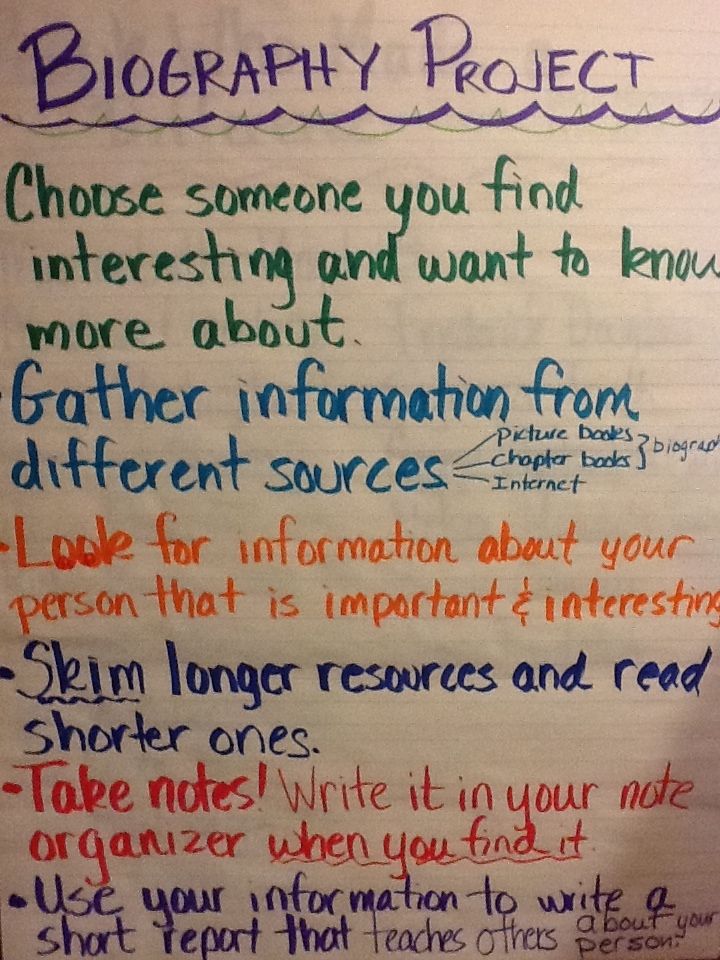 BIOGRAPHY PROJECT
Choose someone you find
interesting and want to know
more about.
Gather information from
different sources
Picture books
Chapter books
Internet
} biograp
• Look for information about your
person that is important & interesting
• Skim longer resources and read
shorter ones.
• Take notes! Write it in your note
organizer when you find it
• Use your information to write a
short report that teaches others about your
person.